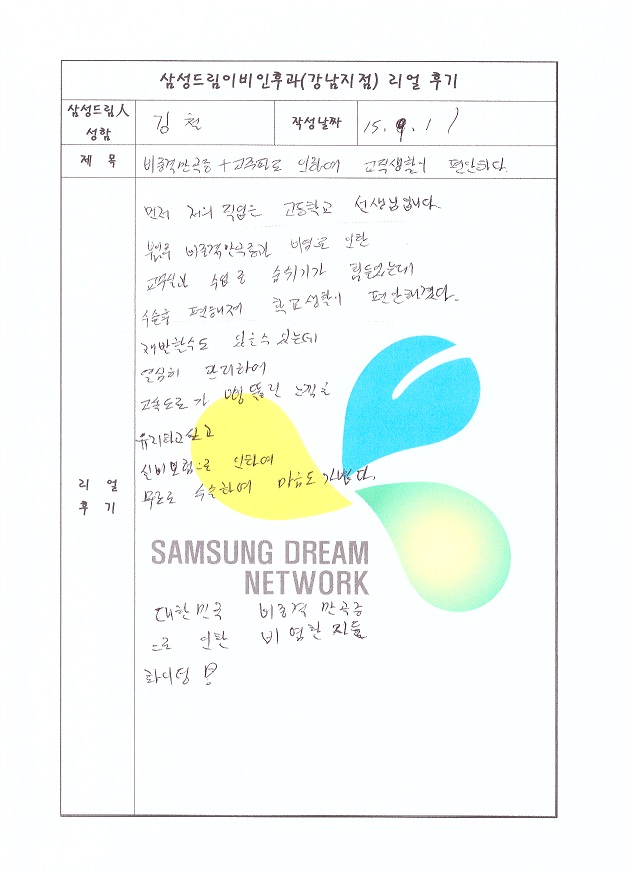 삼성드림이비인후과(강남지점) 리얼 후기
삼성드림人 성함 김철 작성날짜 15. 9. 1
제 목 비중격만곡증 + 고주파로 인하여 교직생활이 편안하다.
먼저 저의 직업은 고등학교 선생님입니다.
비중격만곡증과 비염으로 인한
수업 숨쉬기가 힘들었는데
수술후 편해져 학교생활이 편안해졌다.
재발할수도 있을수 있는데
열심히 관리하여
고속도로가 뻥 뚫린 느낌을
유지하고싶고
실비보험으로 인하여
무료로 수술하여 마음도 가볍다.
리 얼
후 기
SAMSUNG DREAM
NETWORK
대한민국 비중격 만곡증
으로 인한 비염환자들
화이팅!